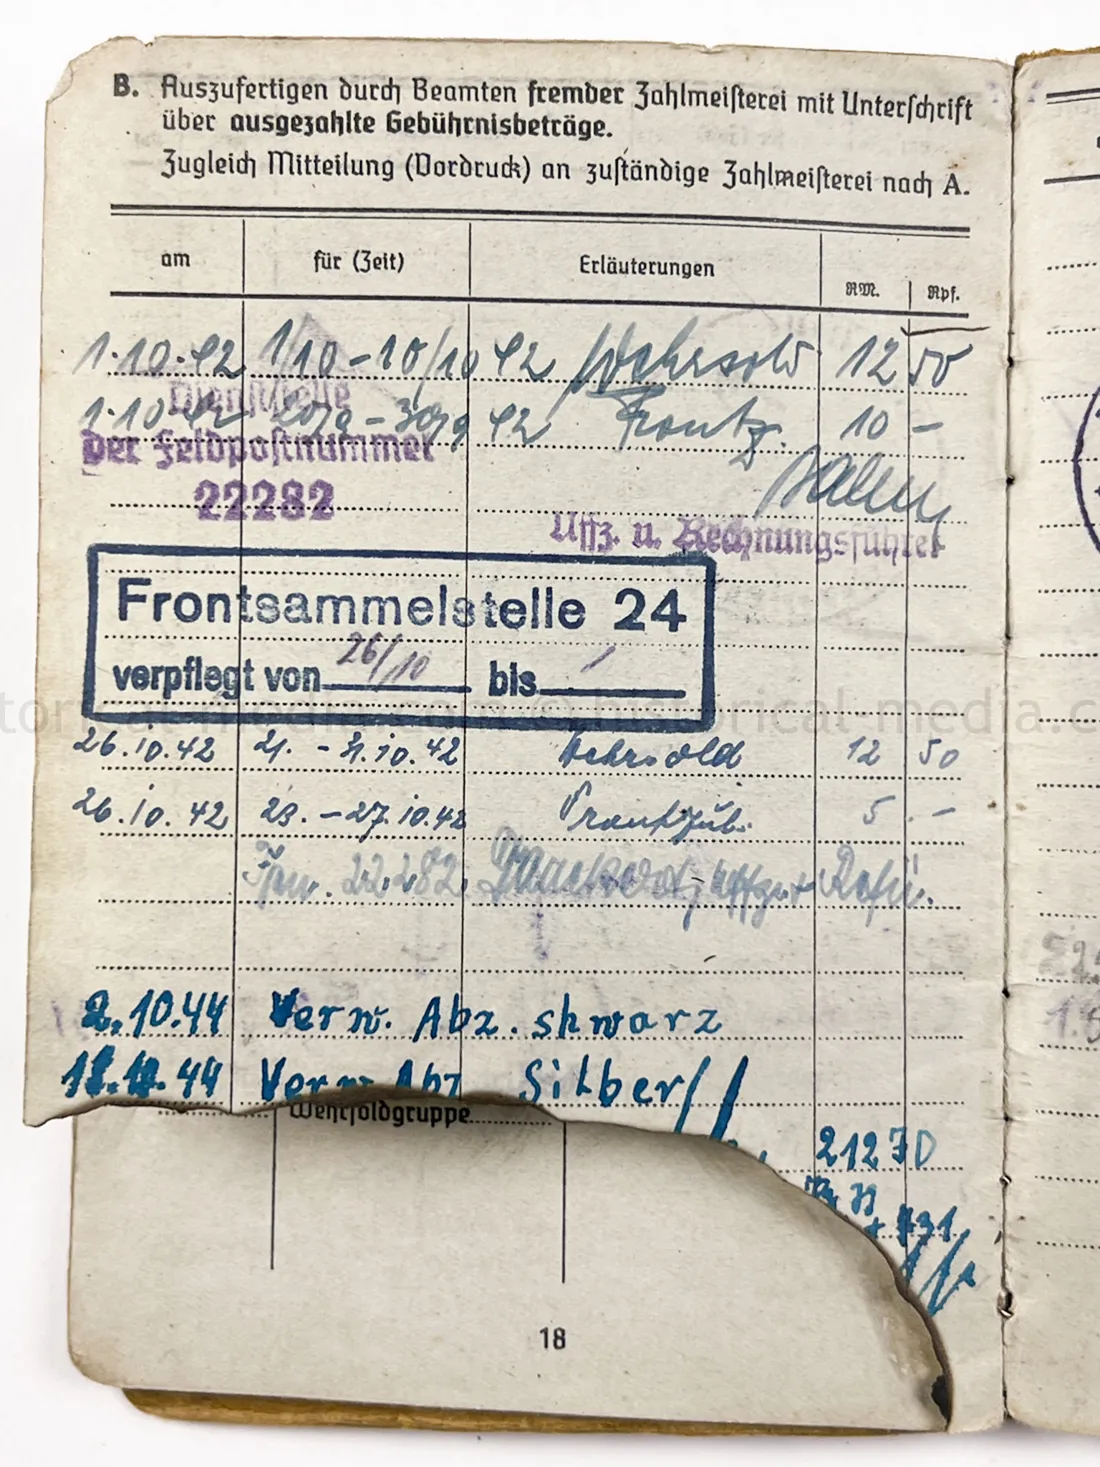 B. Auszufertigen durch Beamten fremder Zahlmeisterei mit Unterschrift
über ausgezahlte Gebührnisbeträge.
Zugleich Mitteilung (Vordruck) an zuständige Zahlmeisterei nach A.
am für (Zeit) Erläuterungen RM. Rpf.
1.10.42 1/10 - 10/10 42 Wehrsold 12 50
1.10.42 20/9 - 30/9 42 Frontz. 10 -
Dienststelle
der Feldpostnummer
22282
Uffz. u. Rechnungsführer
Frontsammelstelle 24
verpflegt von 26/10 bis
26.10.42 21. - 31.10.42 Wehrsold 12 50
26.10.42 23. - 27.10.42 Frontzul. 5 . -
Fpn. 22282 Uffz. u. Refü.
2.10.44 Verw. Abz. shwarz
44 Verw. Abz Silber
Wehrsoldgruppe
18
historical-media.com © historical-media.c